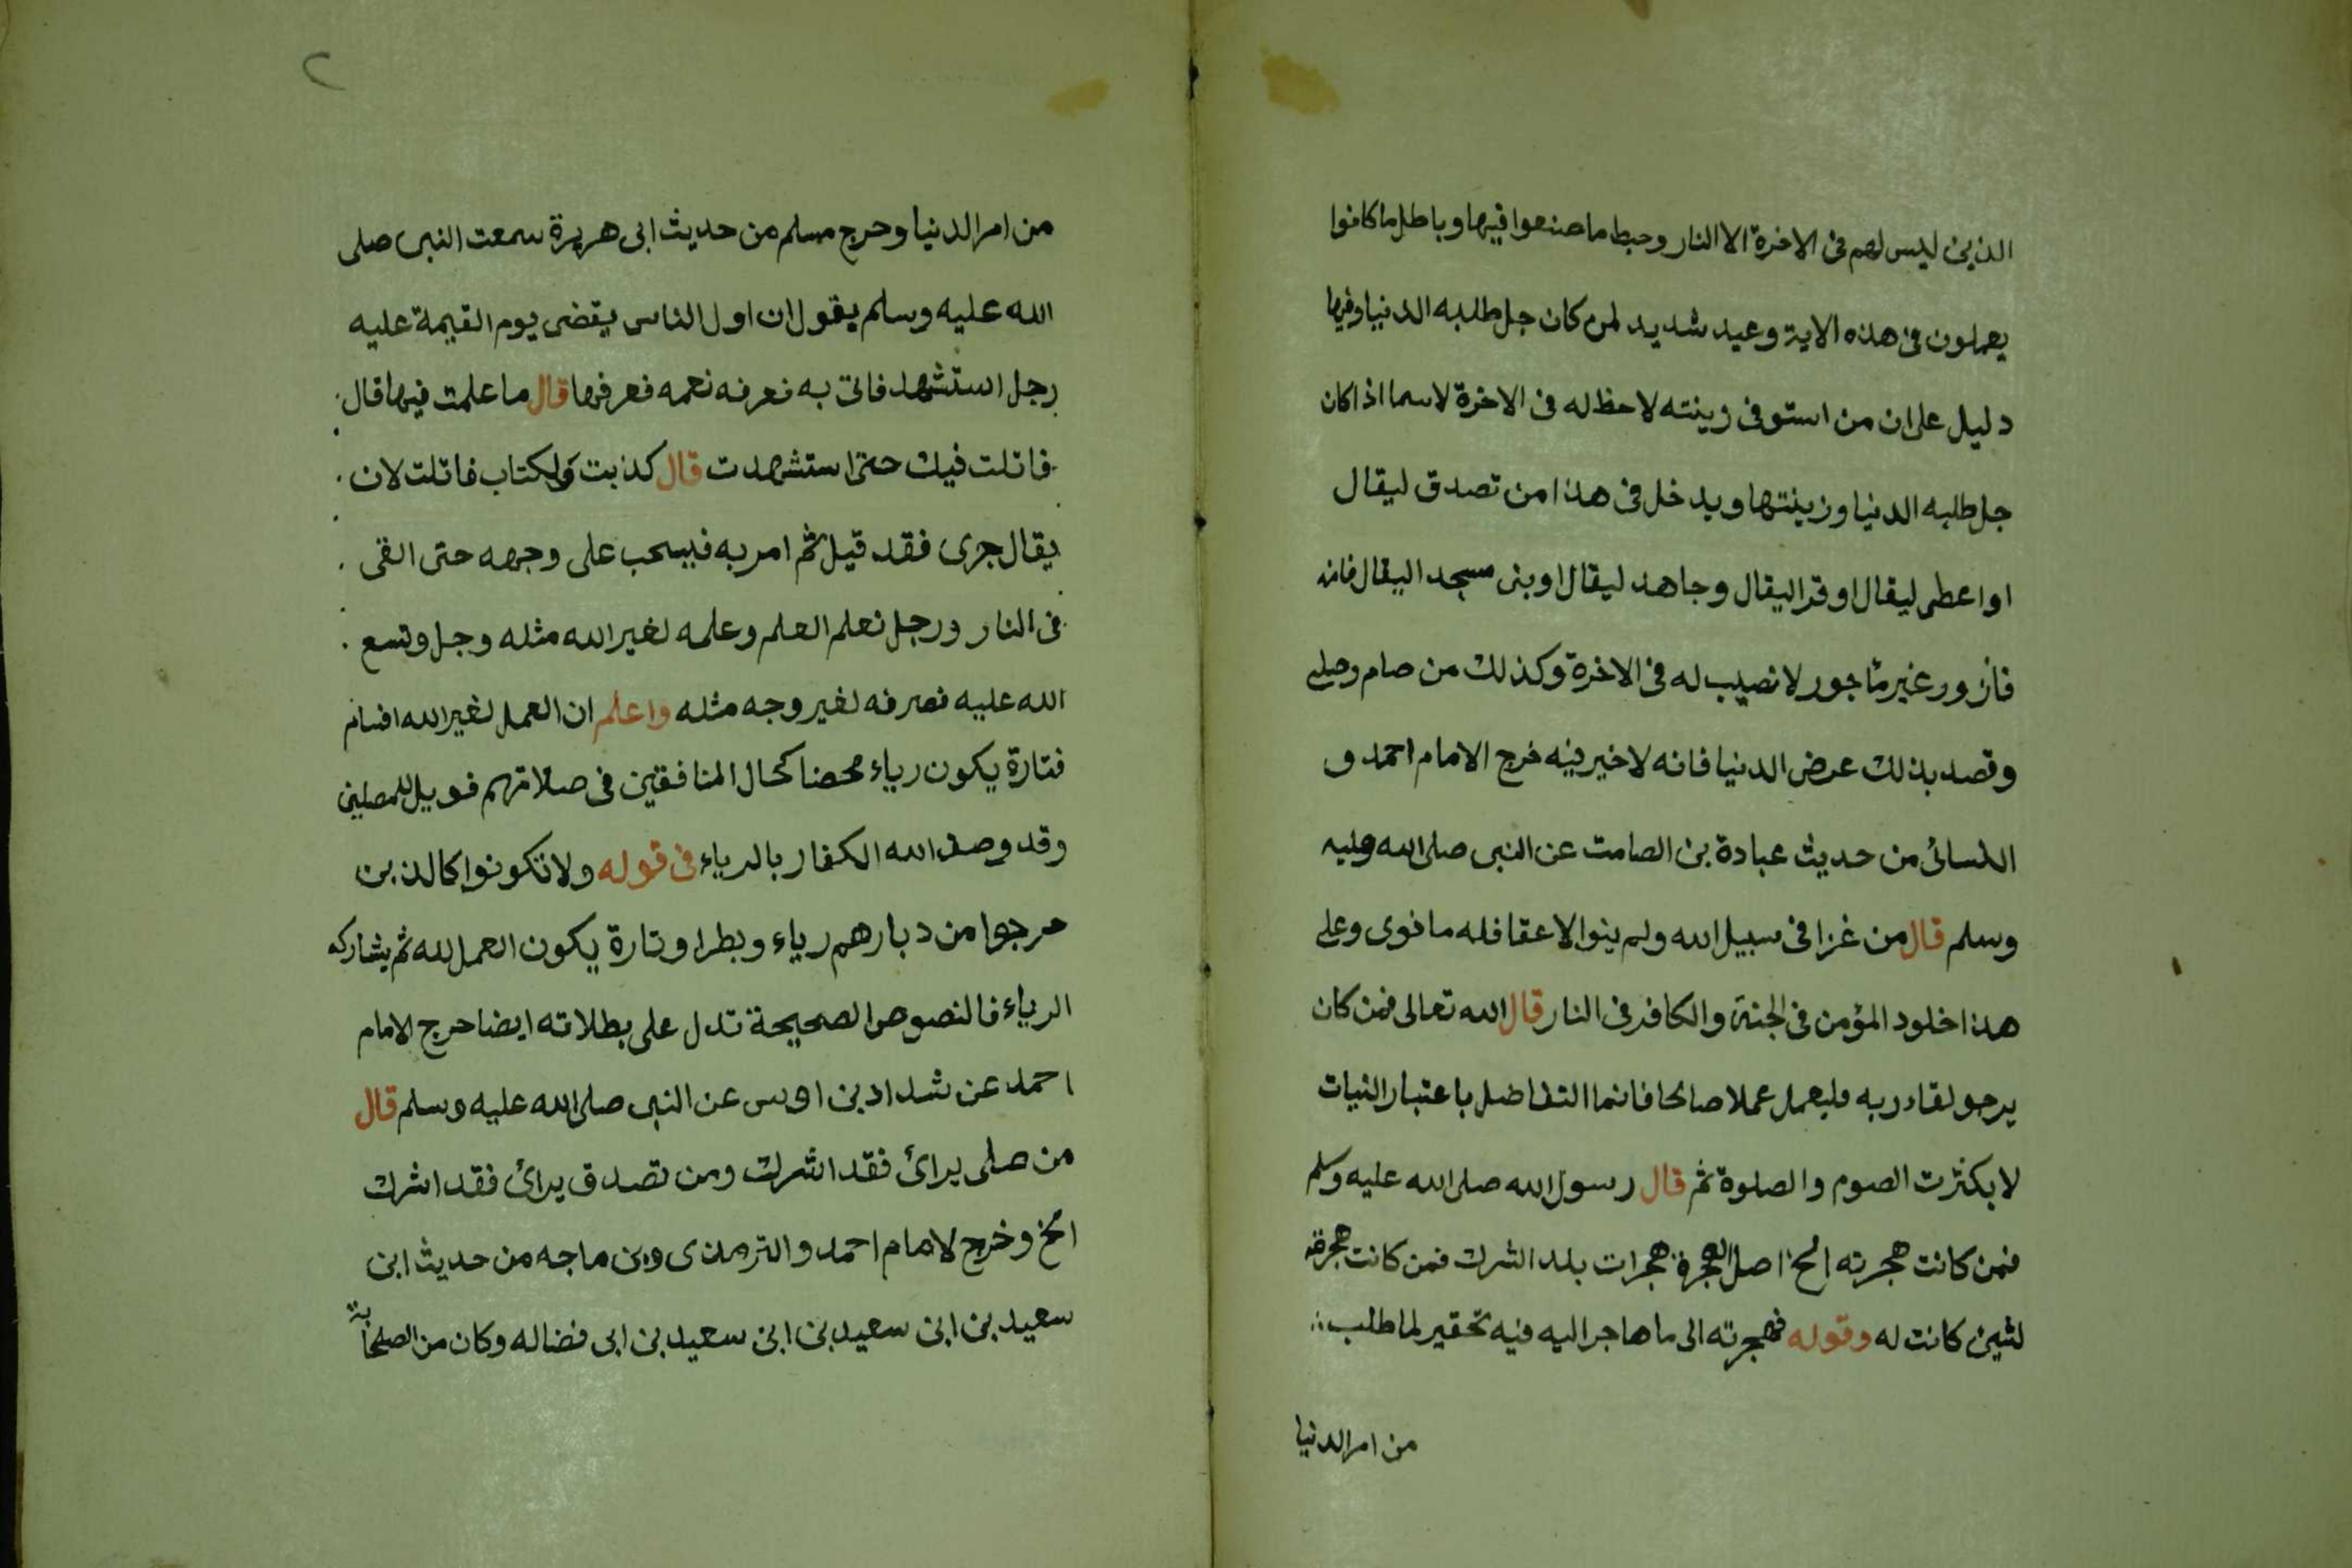 الذين ليس لهم فى الاخرة الا النار وحبط ما صنعوا فيها وباطل ما كانوا
يعملون فى هذه الاية وعيد شديد لمن كان جل طلبه الدنيا وفيها
دليل على ان من استوفى زينته لاحظ له فى الاخرة لاسما اذا كان
جل طلبه الدنيا وزينتها ويدخل فى هذا من تصدق ليقال
او اعطى ليقال او قرا ليقال وجاهد ليقال او بنى مسجد اليقال فانه
مازور غير مأجور لا نصيب له فى الاخرة وكذلك من صام وصلى
وقصد بذلك عرض الدنيا فانه لا خير فيه خرج الامام احمد و
النسائى من حديث عبادة بن الصامت عن النبى صلى الله عليه
وسلم قال من غزا فى سبيل الله ولم ينوا الا عقا فله ما نوى وعلى
هذا خلود المؤمن فى الجنة والكافر فى النار قال الله تعالى فمن كان
يرجو لقاء ربه فليعمل عملا صالحا فانما التفاضل باعتبار النيات
لا بكثرت الصوم والصلوة ثم قال رسول الله صلى الله عليه وسلم
فمن كانت هجرته الخ اصل الهجرة هجرات بلد الشرك فمن كانت هجرته
لشين كانت له وقوله فهجرته الى ما هاجر اليه فيه تحقير لما طلب
من امر الدنيا
٢
من امر الدنيا وحرج مسلم من حديث ابى هريرة سمعت النبى صلى
الله عليه وسلم يقول ان اول الناس يقضى يوم القيمة عليه
رجل استشهد فاتى به فعرفه نعمه فعرفها قال ما علمت فيها قال
قاتلت فيك حتى استشهدت قال كذبت ولكتاب قاتلت لان
يقال جرى فقد قيل ثم امر به فيسحب على وجهه حتى القى
فى النار ورجل تعلم العلم وعلمه لغير الله مثله وجل وتسع
الله عليه فصرفه لغير وجه مثله واعلم ان العمل لغير الله اقسام
فتارة يكون رياء محضا كحال المنافقين فى صلاتهم فويل للمصلين
وقد وصف الله الكفار بالرياء فى قوله ولا تكونوا كالذين
حرجوا من ديارهم رياء وبطرا وتارة يكون العمل لله ثم يشاركه
الرياء فالنصوص الصحيحة تدل على بطلاته ايضا حرج الامام
احمد عن شداد بن اوس عن النبى صلى الله عليه وسلم قال
من صلى يرائ فقد اشرك ومن تصدق يرائ فقد اشرك
الخ وخرج لامام احمد والترمذى وبن ماجه من حديث ابن
سعيد بن ابن سعيد بن ابن سعيد بن ابى فضاله وكان من الصحابة